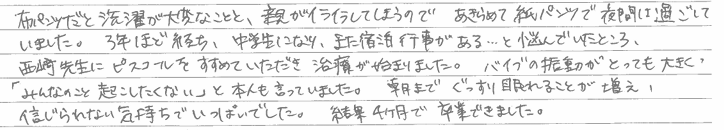 布パンツだと洗濯が大変なことと、親がイライラしてしまうので あきらめて紙パンツで夜間は過ごして
いました。 3年ほど経ち、中学生になり、また宿泊行事がある…と悩んでいたところ、
西崎先生にピスコールをすすめていただき 治療が始まりました。 バイブの振動がとっても大きく、
「みんなのこと起こしたくない」と本人も言っていました。 朝までぐっすり眠れることが増え、
信じられない気持ちでいっぱいでした。 結果 4ヶ月で卒業できました。